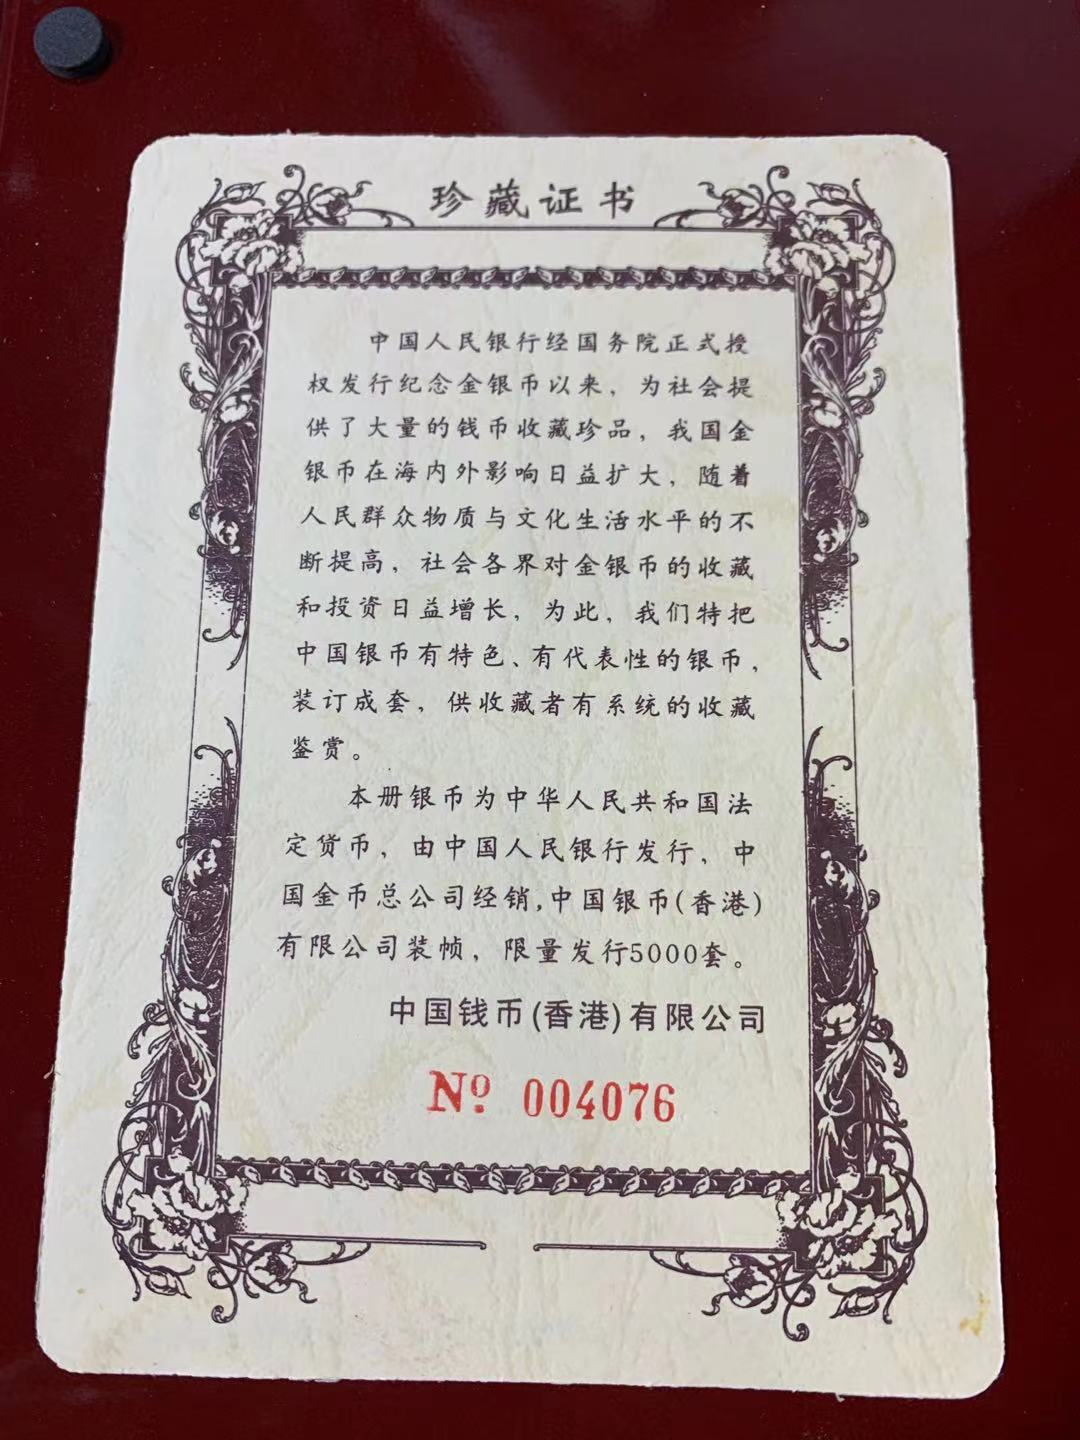 珍藏证书
中国人民银行经国务院正式授
权发行纪念金银币以来，为社会提
供了大量的钱币收藏珍品，我国金
银币在海内外影响日益扩大，随着
人民群众物质与文化生活水平的不
断提高，社会各界对金银币的收藏
和投资日益增长，为此，我们特把
中国银币有特色、有代表性的银币，
装订成套，供收藏者有系统的收藏
鉴赏。
本册银币为中华人民共和国法
定货币，由中国人民银行发行，中
国金币总公司经销,中国银币(香港)
有限公司装帧，限量发行5000套。
中国钱币(香港)有限公司
Nº 004076